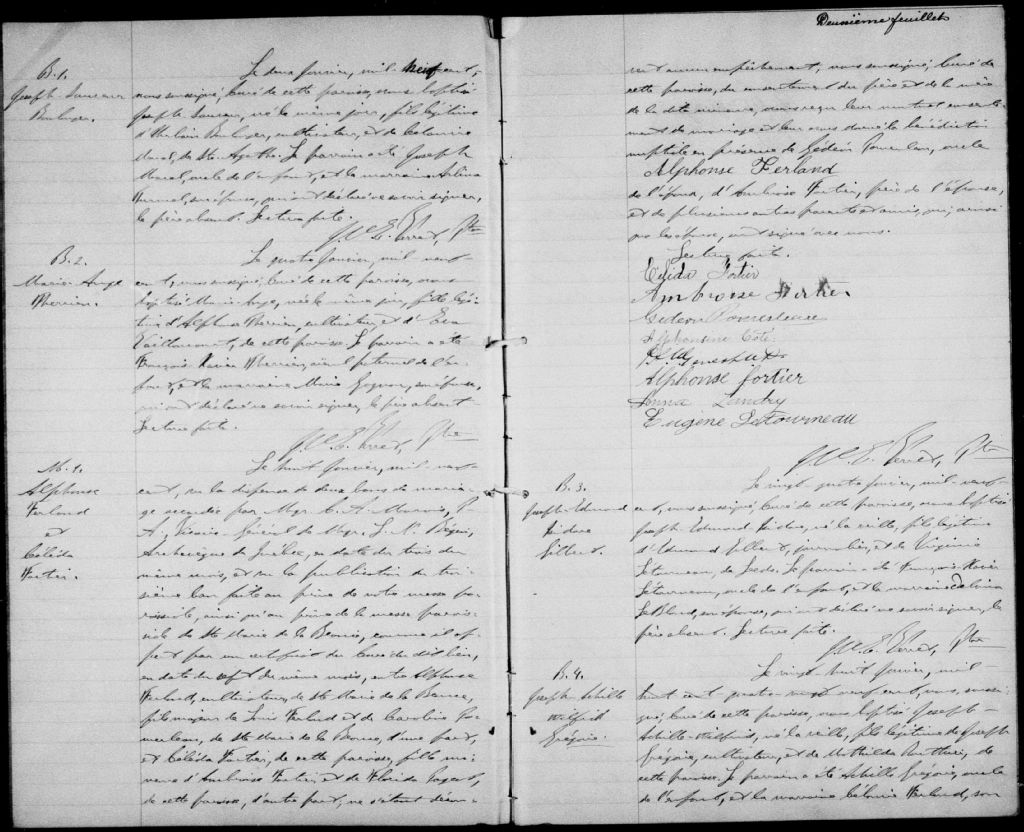 B. 1.
Joseph
Boulanger.
Le deux Janvier, mil neuf cent,
nous soussigné, Curé de cette paroisse, avons baptisé
Joseph, né le même jour, fils légitime
Boulanger, cultivateur, et de
de Ste. Agathe. Le parrain a été Joseph
oncle de l'enfant, et la marraine
son épouse, qui ont déclaré ne savoir signer,
le père absent. Lecture faite.
Ptre
B. 2.
Marie Ange
Therrien.
Le quatre Janvier, mil neuf-
cent, nous soussigné, Curé de cette paroisse, avons
baptisé Marie Ange, née le même jour, fille légi-
time d'Alphonse Therrien, cultivateur, et d'
Vaillancourt, de cette paroisse. Le parrain a été
François Xavier Therrien, aïeul paternel de l'en-
fant, et la marraine Marie Gagnon, son épouse,
qui ont déclaré ne savoir signer, le père absent.
Lecture faite.
Ptre
M. 1.
Alphonse
Ferland
et
Fortier.
Le huit Janvier, mil neuf
cent, vu la dispense de deux bans de maria-
ge accordée par Mgr C. A. Marois, P.
A., Vicaire Général de Mgr. L. N. Bégin,
Archevêque de Québec, en date du trois du
même mois, et vu la publication du troi-
sième ban faite au prône de notre messe pa-
roissiale, ainsi qu'au prône de la messe parois-
siale de Ste Marie de la Beauce, comme il ap-
pert par un certificat du Curé du dit lieu,
en date du sept du même mois, entre Alphonse
Ferland, cultivateur, de Ste Marie de la Beauce,
fils majeur de Louis Ferland et de Caroline Po-
merleau, de Ste Marie de la Beauce, d'une part,
et Fortier, de cette paroisse, fille mi-
neure d'Ambroise Fortier et de
de cette paroisse, d'autre part, ne s'étant décou-
Deuxième feuillet
vert aucun empêchement, nous soussigné, Curé de
cette paroisse, du consentement du père et de la mère
de la dite mineure, avons reçu leur mutuel consente-
ment de mariage et leur avons donné la bénédiction
nuptiale en présence de Gédéon Pomerleau, oncle
Alphonse Ferland
de l'époux, d'Ambroise Fortier, père de l'épouse,
et de plusieurs autres parents et amis, qui, ainsi
que les époux, ont signé avec nous.
Lecture faite.
Fortier
Ambroise Fortier
Gédéon
Alphonsine Coté
Alphonse fortier
Landry
Eugène Letourneau
Ptre
B. 3.
Joseph Edmond
Isidore
Gilbert.
Le vingt-quatre Janvier, mil neuf-
cent, nous soussigné, Curé de cette paroisse, avons baptisé
Joseph Edmond Isidore, né la veille, fils légitime
d'Edmond Gilbert, journalier, et de Virginie
Létourneau, de Leeds. Le parrain a été François-Xavier
Létourneau, oncle de l'enfant, et la marraine
LeBlond, son épouse, qui ont déclaré ne savoir signer, le
père absent. Lecture faite.
Ptre
B. 4.
Joseph Achille
Wilfrid
Grégoire.
Le vingt-huit Janvier, mil-
huit cent quatre vingt neuf cent, nous soussi-
gné, Curé de cette paroisse, avons baptisé Joseph-
Achille-Wilfrid, né la veille, fils légitime de Joseph
Grégoire, cultivateur, et de Mathilda, de
cette paroisse. Le parrain a été Achille Grégoire, oncle
de l'enfant, et la marraine Ferland, son